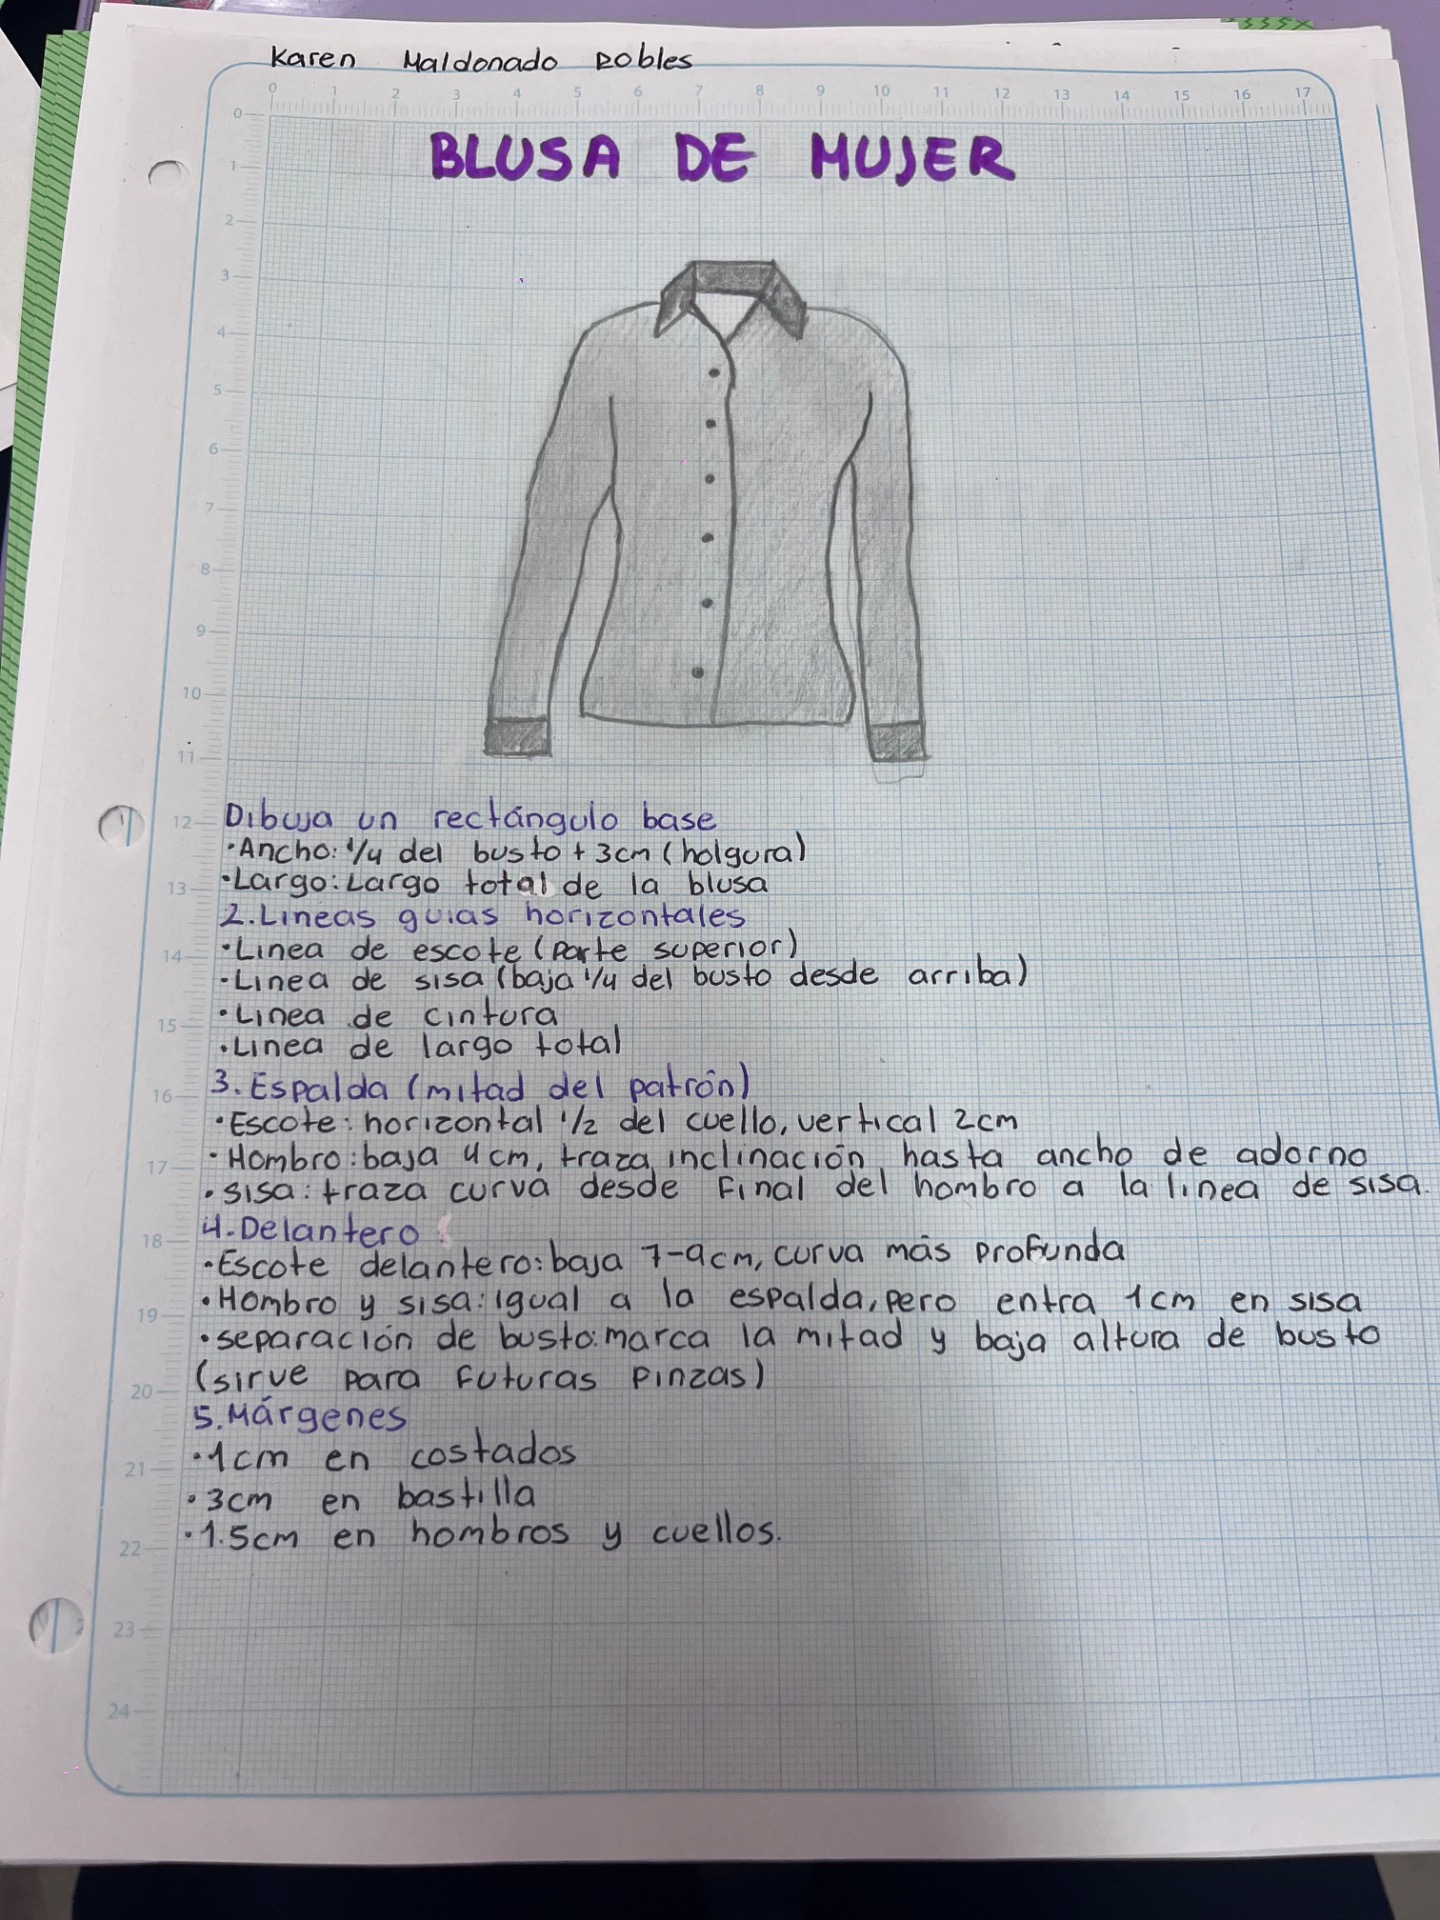 Karen Maldonado Robles
0 1 2 3 4 5 6 7 8 9 10 11 12 13 14 15 16 17
BLUSA DE MUJER
0
1
2
3
4
5
6
7
8
9
10
11
12
13
14
15
16
17
18
19
20
21
22
23
24
Dibuja un rectángulo base
·Ancho: 1/4 del busto + 3cm (holgura)
·Largo: Largo total de la blusa
2. Lineas guias horizontales
·Linea de escote (parte superior)
·Linea de sisa (baja 1/4 del busto desde arriba)
·Linea de cintura
·Linea de largo total
3. Espalda (mitad del patrón)
·Escote: horizontal 1/2 del cuello, vertical 2cm
·Hombro: baja 4cm, traza inclinación hasta ancho de adorno
·sisa: traza curva desde Final del hombro a la linea de sisa.
4. Delantero
·Escote delantero: baja 7-9cm, curva más profunda
·Hombro y sisa: igual a la espalda, pero entra 1cm en sisa
·separación de busto: marca la mitad y baja altura de busto
(sirve para Futuras Pinzas)
5. Márgenes
·1cm en costados
·3cm en bastilla
·1.5cm en hombros y cuellos.